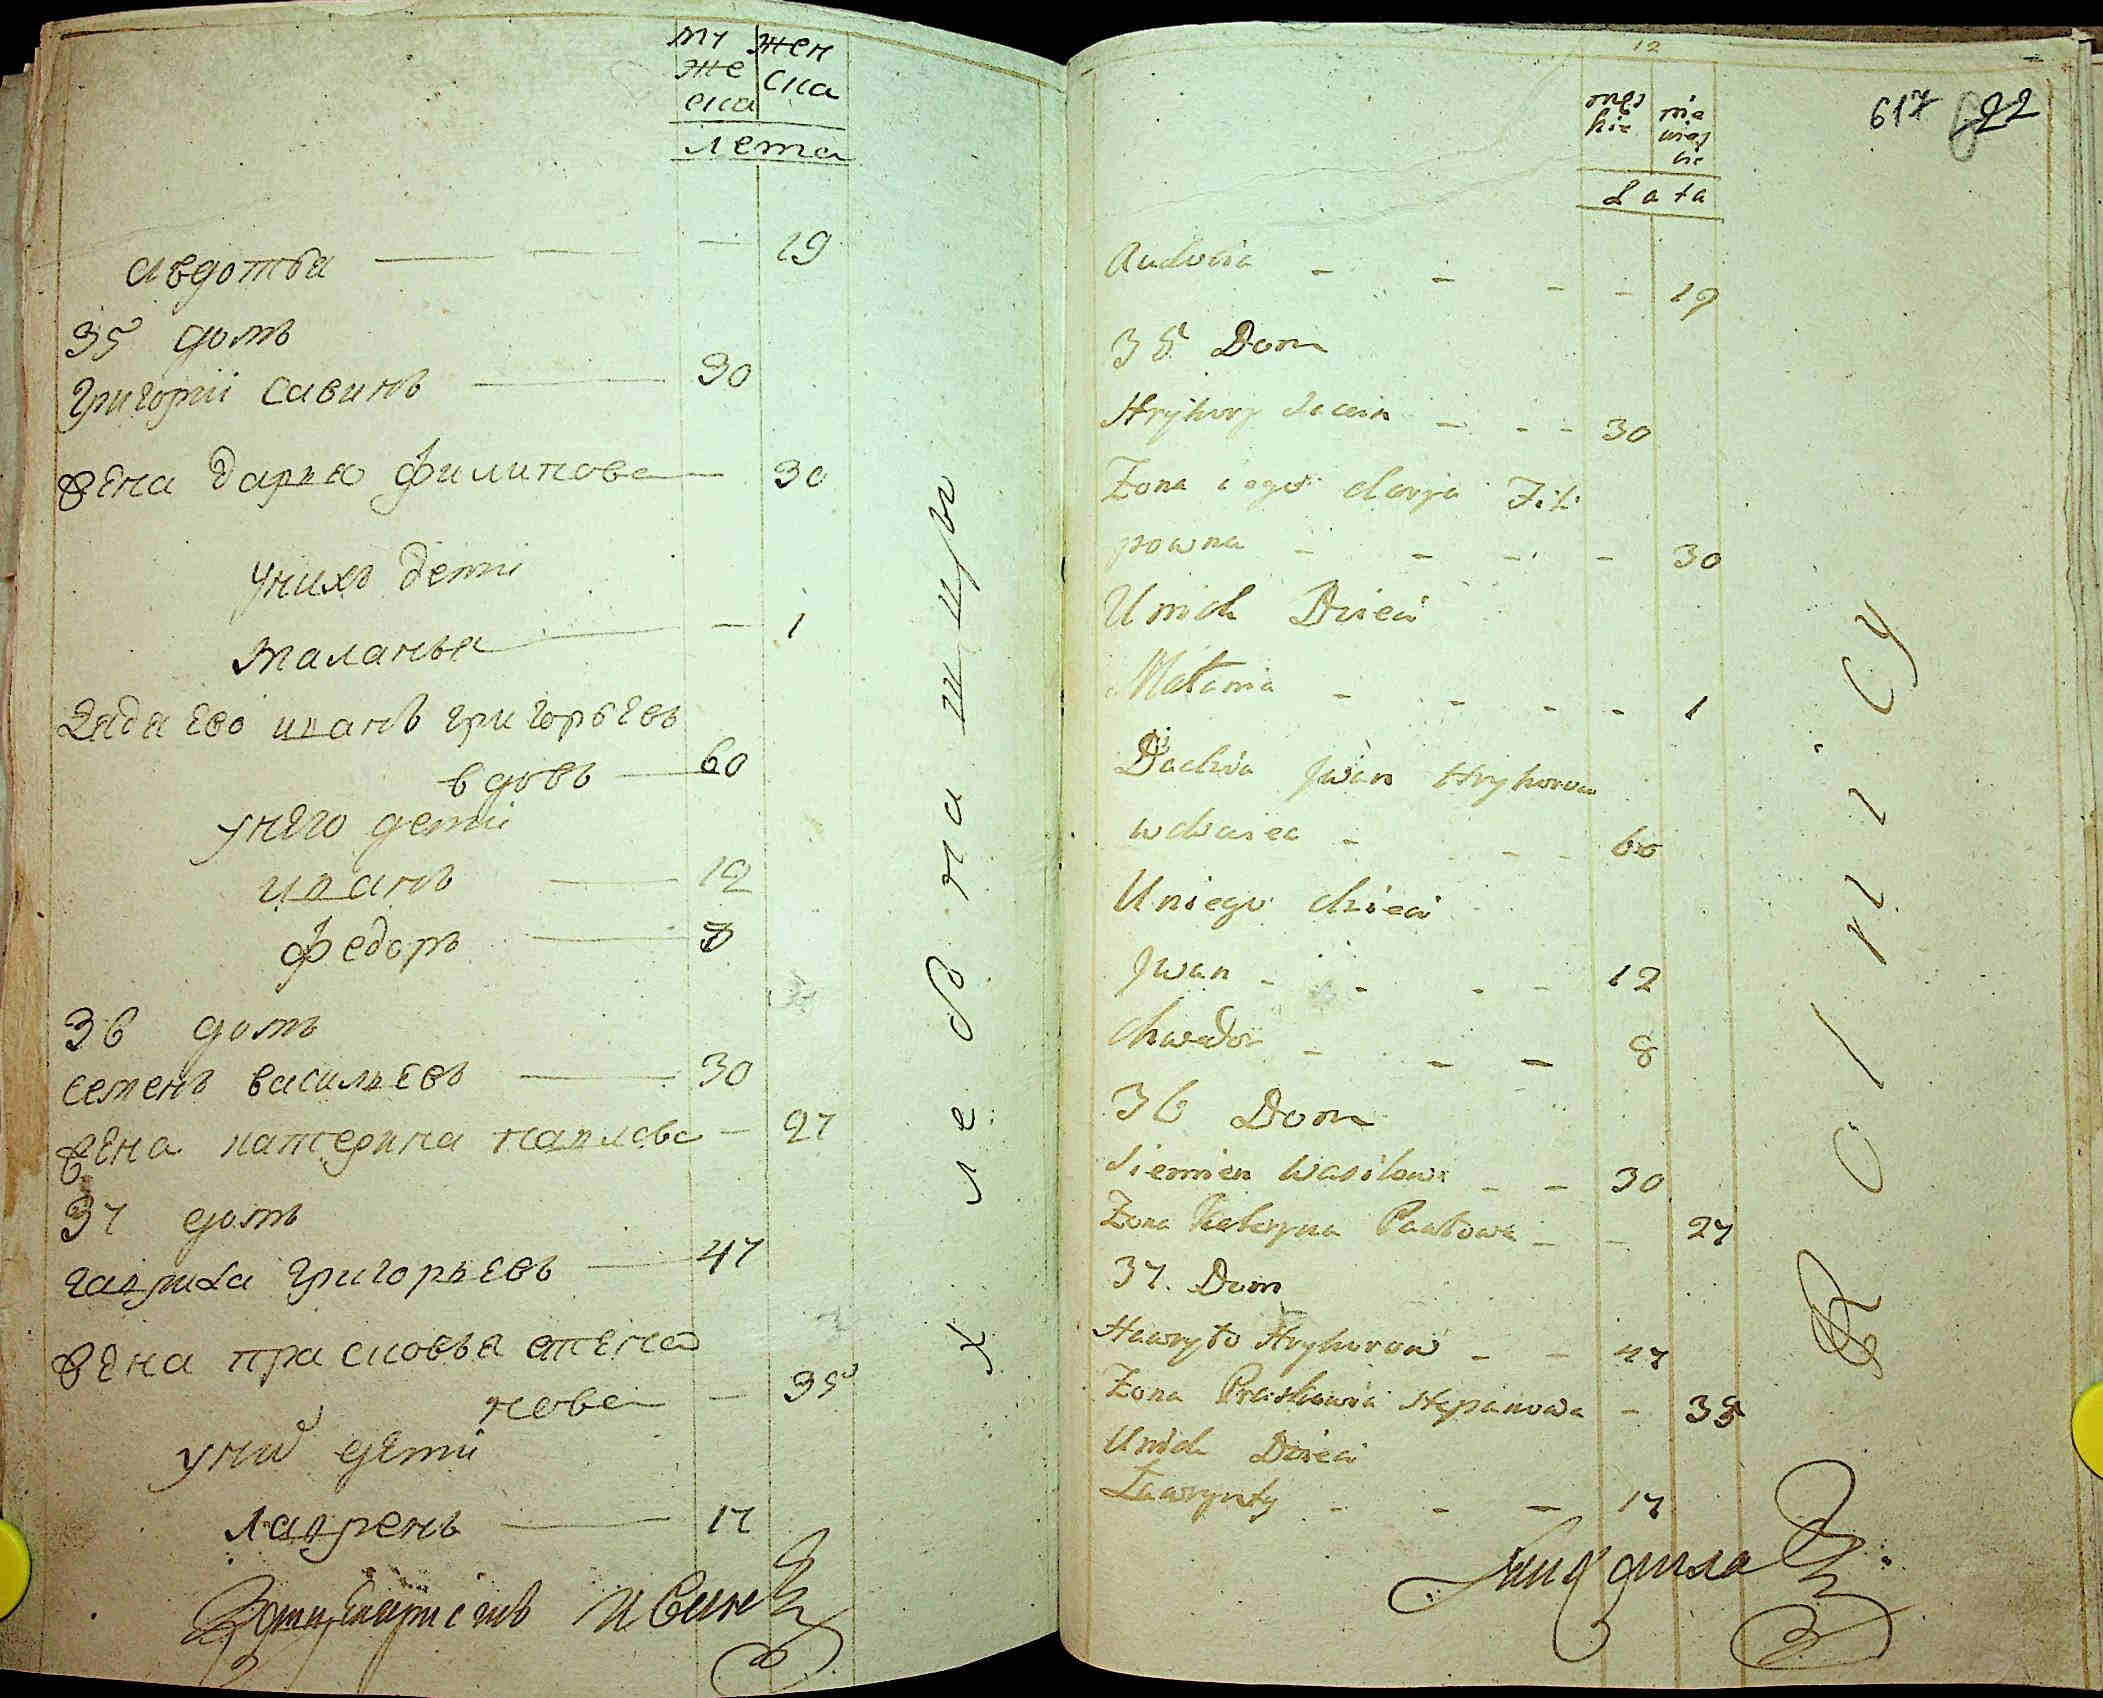 му
же
ска
жен
ска
лета
авдотья — — — 19
35 домъ
Григорiи савинъ — 30
жена дарья филипова — 30
унихъ детi
маланья — — 1
дядя Ево иванъ григорьевъ
вдовъ — 60
унего детiи
иванъ — 12
федоръ — 8
36 домъ
семенъ васильевъ — 30
жена катерина павлова — 27
37 домъ
гаврила григорьевъ — 47
жена прасковья степа
нова — 35
унихъ детiи
лаврень — 17
хлебнашцы
12
617
622
męs
kie
nie
wieś
cie
Lata
Audocia - - - - 19
35 Dom
Hryhory Sawin - - - 30
Zona iego darja Fili
powna - - - - 30
Unich Dzieci
Małania - - - - 1
Dzladzia Jwan Hryhorow
wdowiec - - - 60
Uniego dzieci
Jwan - - - - 12
Chwedor - - - 8
36 Dom
Siemien Wasilow - - 30
Zona Kateryna Pawłowa - - 27
37. Dom
Hawryło Hryhorow - - 47
Zona Praskowia Stepanowa - 35
Unich Dzieci
Ławrynty - - - 17
Rolnicy